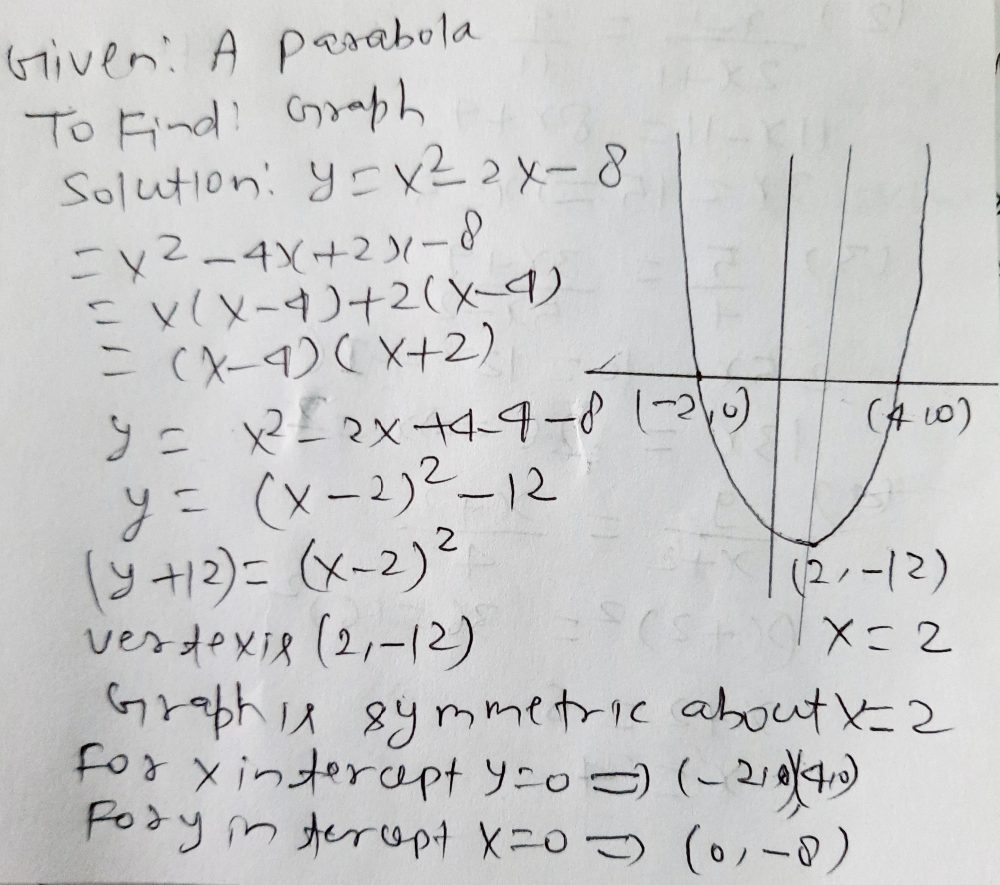 Given: A parabola
To Find: Graph
Solution: y = x² - 2x - 8
= x² - 4x + 2x - 8
= x(x-4)+2(x-4)
= (x-4)(x+2)
y = x² - 2x + 4 - 4 - 8
y = (x-2)² - 12
(y+12) = (x-2)²
vertex is (2,-12)
Graph is symmetric about x=2
For x intercept y=0 ⇒ (-2,0)(4,0)
For y intercept x=0 ⇒ (0,-8)
(-2,0)
(4,0)
(2,-12)
x = 2